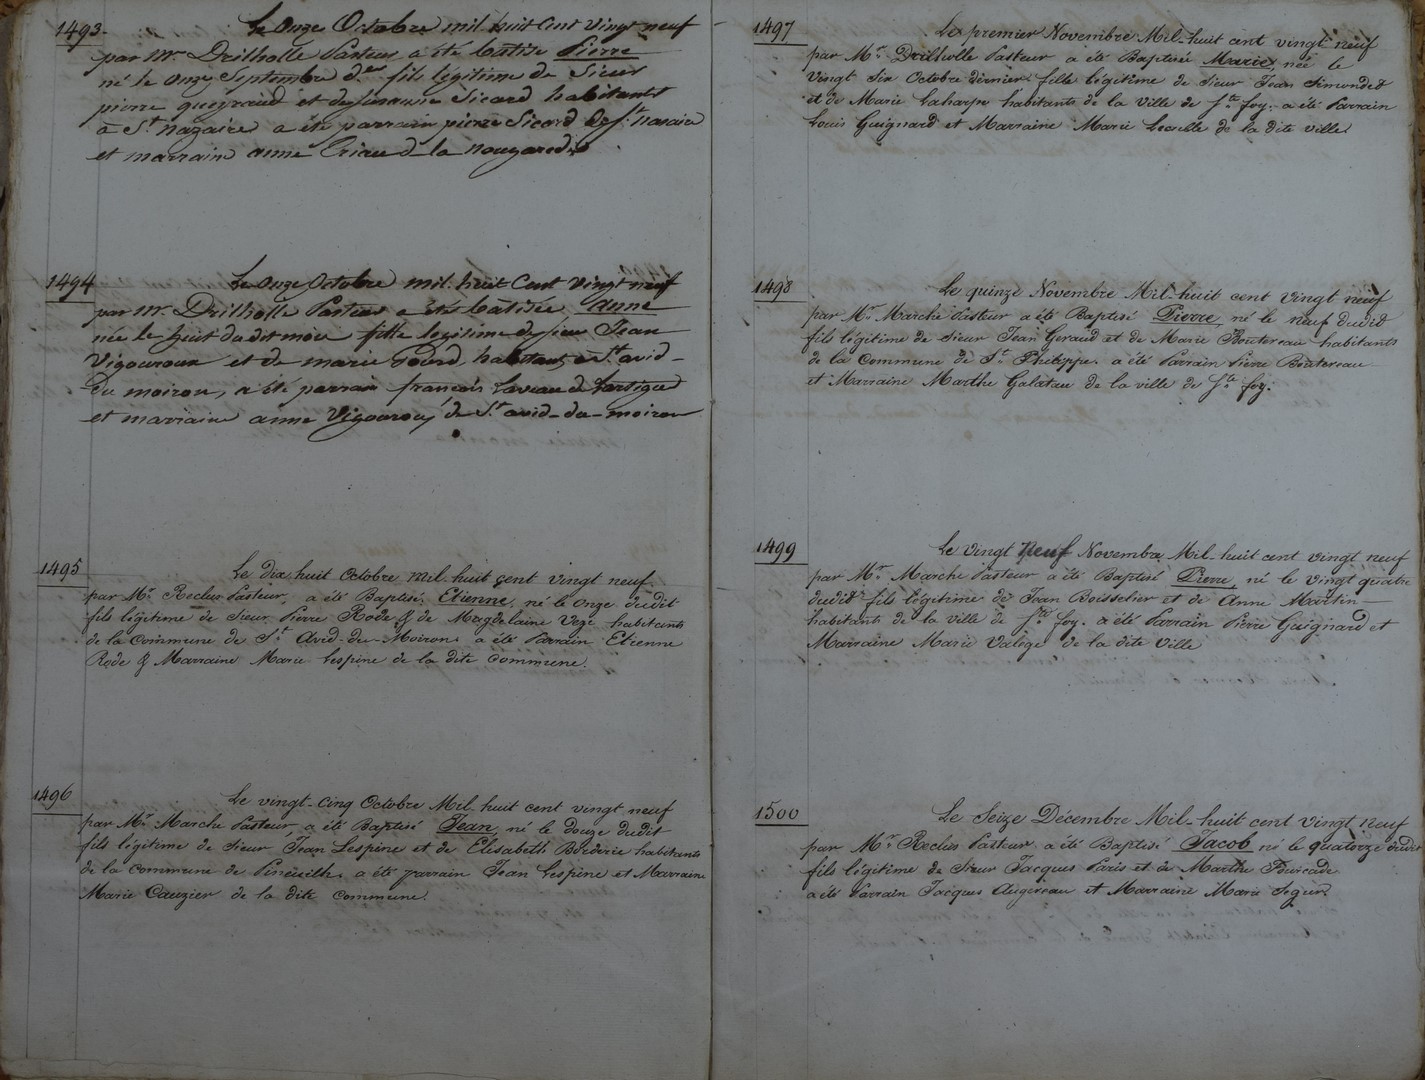 1493.
Le onze Octobre mil huit Cent vingt neuf
par mr. Drilholle Pasteur a été batisé Pierre
né le onze Septembre der fils légitime de Sieur
pierre queyraud et de Sicard habitants
à St. nazaire a été parrain pierre Sicard de St. Nazaire
et marraine anne de la
1494
Le onze Octobre mil huit Cent vingt neuf
par mr. Drilholle Pasteur a été batisée anne
née le huit du dit mois fille legitime de sieur Jean
Vigouroux et de marie Gourd habitant a St. avid-
du moiron, a été parrain francois Laveau de Lartigue
et marraine anne Vigouroux de St. avid-du-moiron
1495
Le dix huit Octobre Mil huit cent vingt neuf
par Mr. Reclus Pasteur, a été Baptisé Etienne, né le Onze dudit
fils légitime de Sieur Pierre Rode & de Magdelaine habitants
de la Commune de St. Avid-du-Moiron a été Parrain Etienne
Rode & Marraine Marie Lespine de la dite Commune.
1496
Le vingt-cinq Octobre Mil huit cent vingt neuf
par Mr. Marche Pasteur, a été Baptisé Jean, né le Douze dudit
fils légitime de Sieur Jean Lespine et de Elisabeth Borderie habitants
de la Commune de Pineuilh, a été parrain Jean Lespine et Marraine
Marie Cauzier de la dite Commune.
1497
Le premier Novembre Mil-huit cent vingt neuf
par Mr. Drilholle Pasteur a été Baptisée Marie, née le
Vingt Six Octobre dernier fille légitime de Sieur Jean Simondet
et de Marie Laharpe habitants de la ville de Ste. foy. a été Parrain
Louis Guignard et Marraine Marie de la dite ville
1498
Le quinze Novembre Mil-huit cent vingt neuf
par Mr. Marche Pasteur a été Baptisé Pierre, né le neuf dudit
fils légitime de Sieur Jean Geraud et de Marie Boutereau habitants
de la Commune de St. Philippe a été Parrain Pierre Boutereau
et Marraine Marthe Galatau de la ville de Ste. foy.
1499
Le vingt neuf Novembre Mil huit cent vingt neuf
par Mr. Marche Pasteur a été Baptisé Pierre, né le vingt quatre
dudit fils légitime de Jean Boisselier et de Anne Martin
habitants de la ville de Ste. foy. a été Parrain Pierre Guignard et
Marraine Marie Valège de la dite Ville
1500
Le Seize Décembre Mil-huit cent vingt neuf
par Mr. Reclus Pasteur a été Baptisé Jacob né le quatorze dudit
fils légitime de Sieur Jacques Paris et de Marthe Fourcade
a été Parrain Jacques Augereau et Marraine Marie Segur.